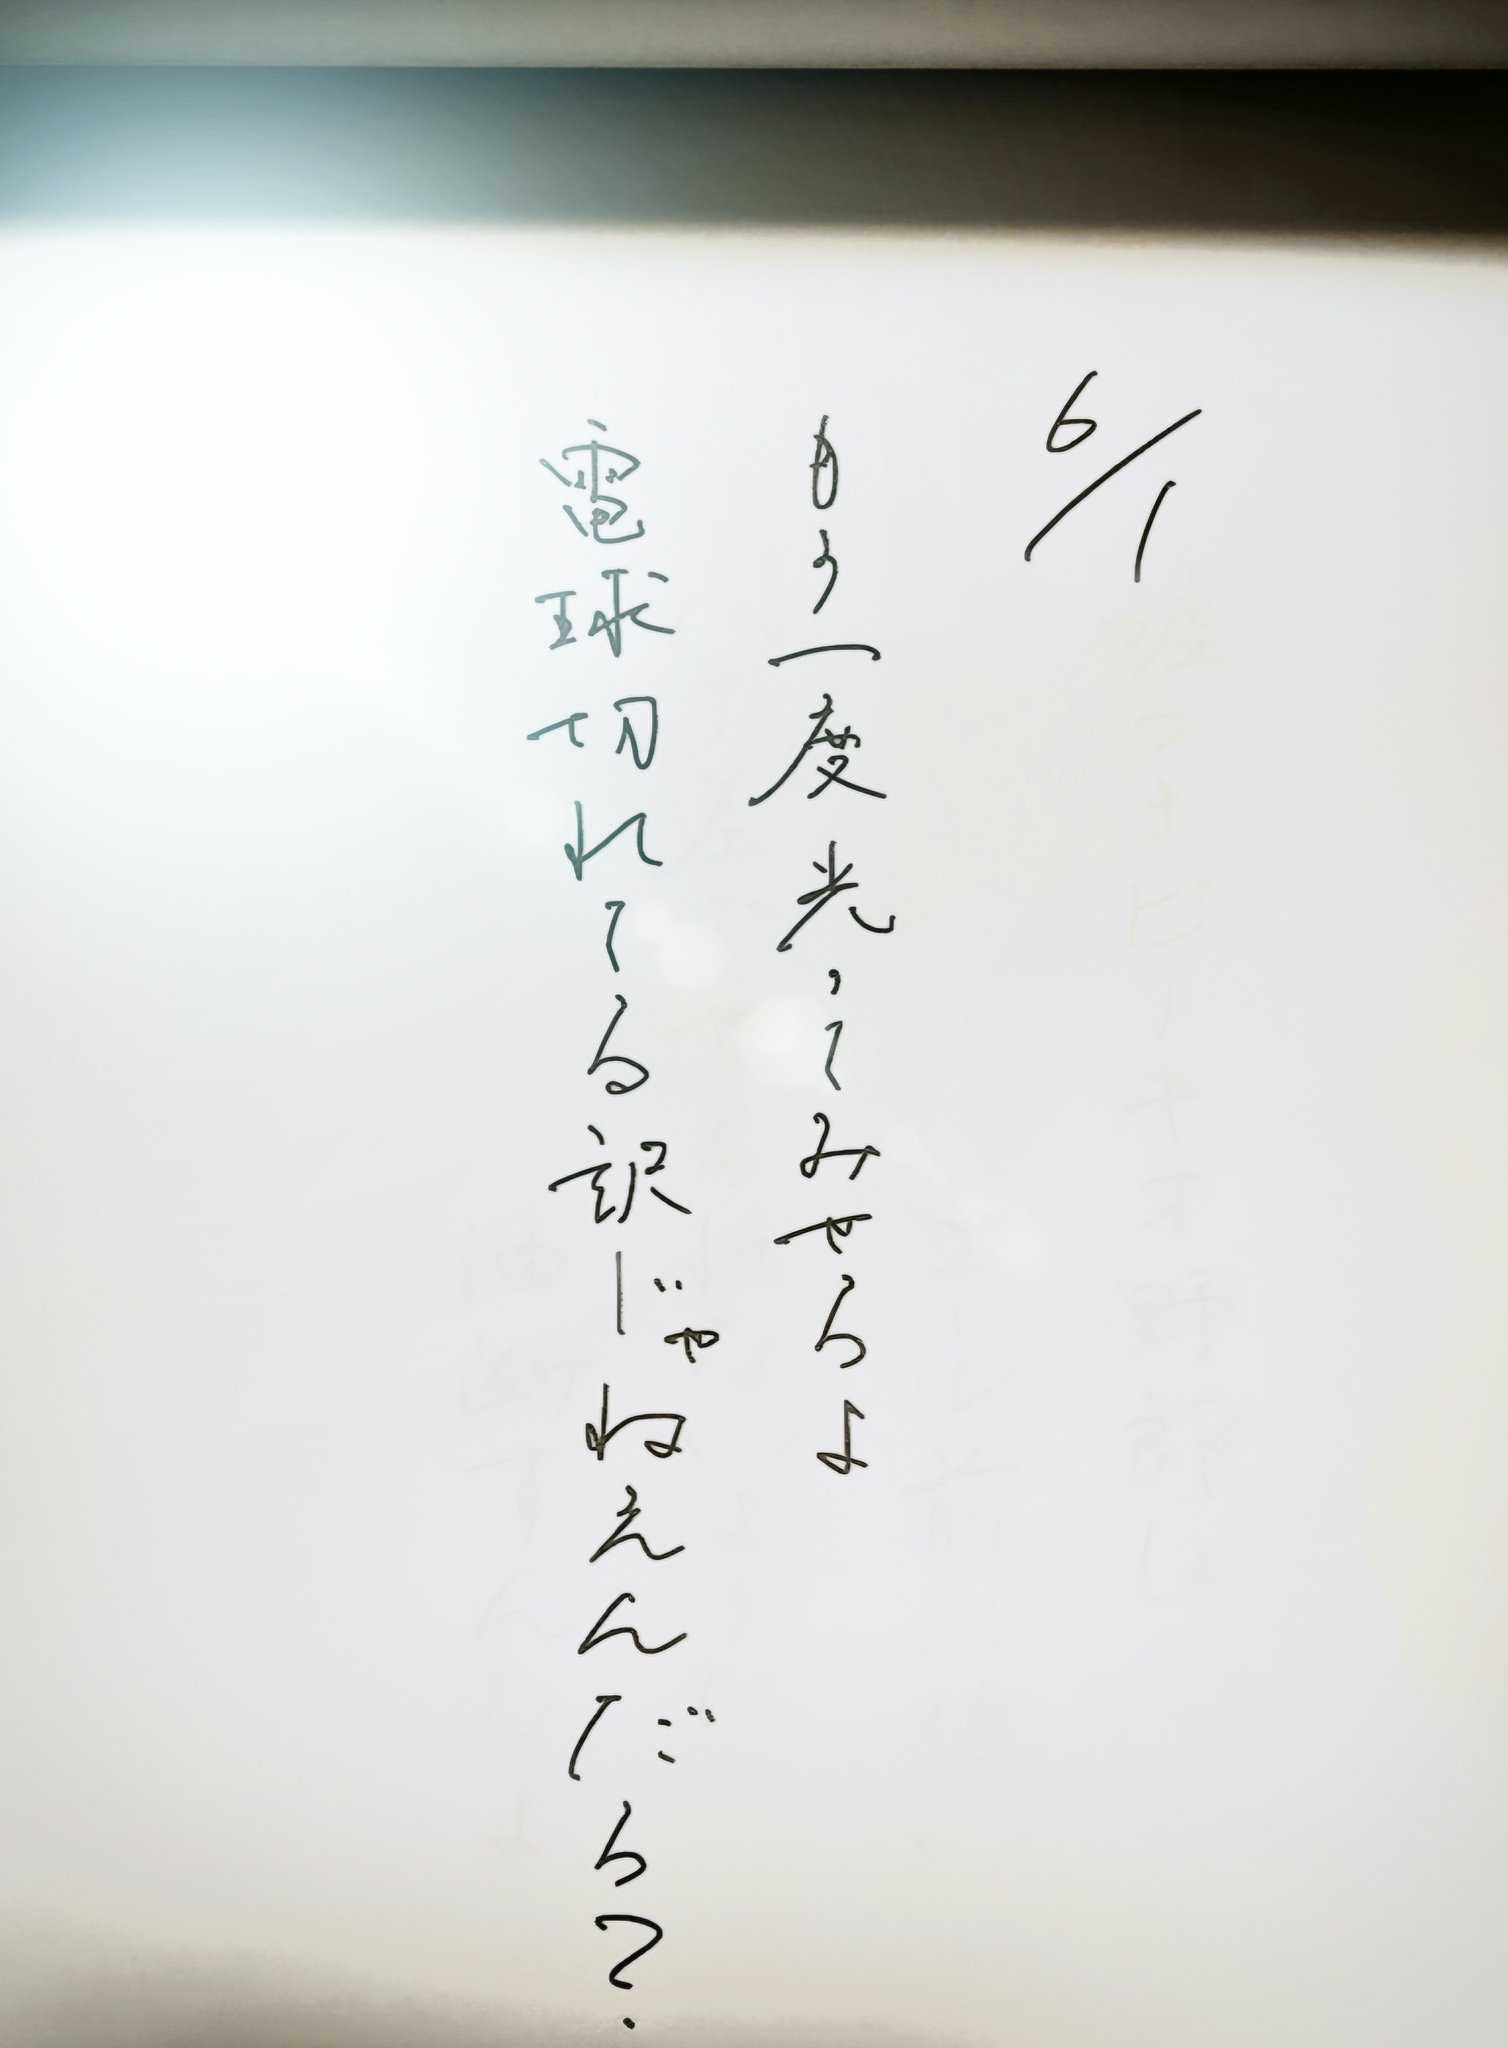 6/1
もう一度光ってみせろよ
電球切れてる訳じゃねえんだろ?